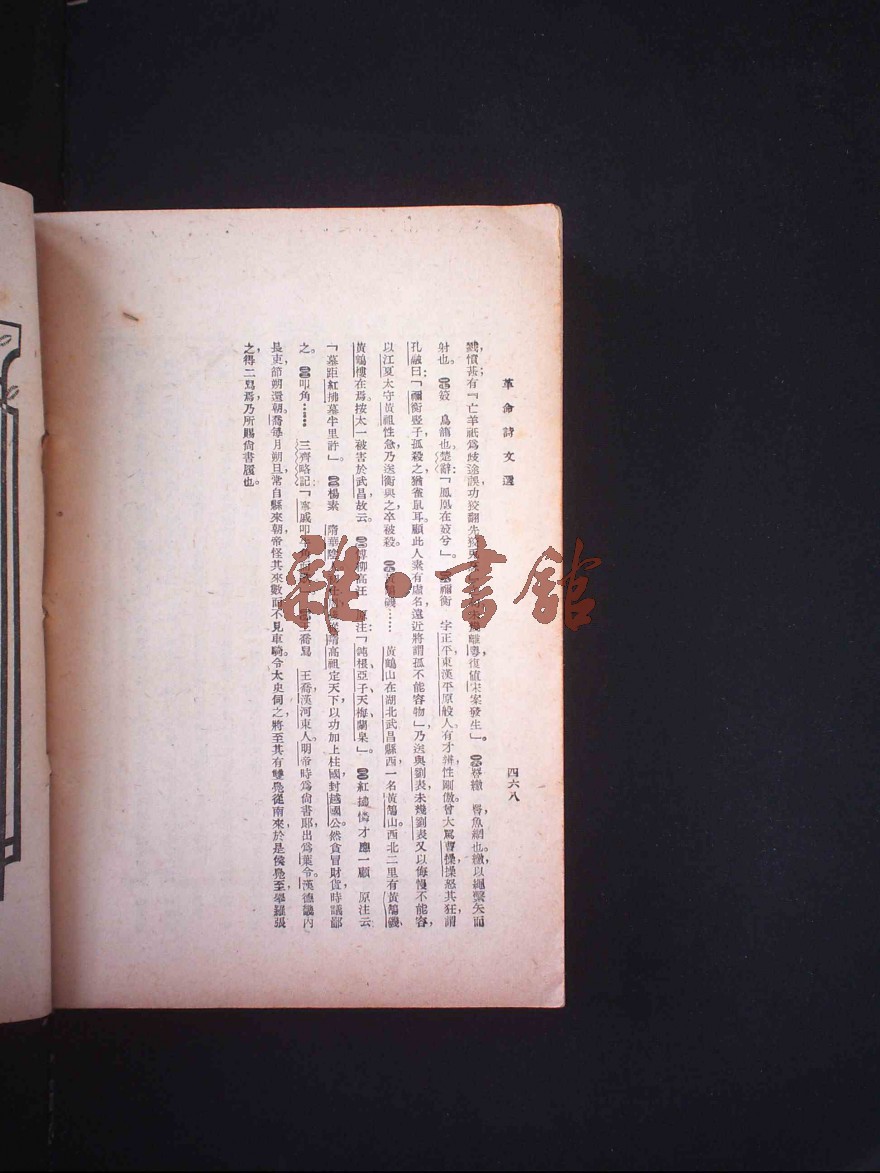 革命詩文選
四六八
戮憤甚有『亡羊祇爲歧途誤，功狡翻先狡兔
離粵復值宋案發生』。 罾繳 罾魚網也。繳，以繩繫矢而
射也。 笯 鳥籠也。楚辭：「鳳凰在笯兮」。 禰衡 字正平，東漢平原般人。有才辨，性剛傲。曾大罵曹操，操怒其狂，謂
孔融曰：「禰衡豎子，孤殺之猶雀鼠耳。顧此人素有虛名，遠近將謂孤不能容物」乃送與劉表，未幾劉表又以侮慢不能容，
以江夏太守黃祖性急，乃送衡與之，卒被殺。 磯…… 黃鶴山在湖北武昌縣西，一名黃鵠山。西北二里有黃鵠磯，
黃鶴樓在焉。按太一被害於武昌，故云。 傅柳高汪 原注：「鈍根、亞子、天梅、蘭臯」。 紅拂憐才應一顧 原注云：
「墓距紅拂墓半里許」。 楊素 隋華陰
隋高祖定天下，以功加上柱國，封越國公。然貪冒財貨，時議鄙
之。 叩角…… 三齊略記：「甯戚叩牛角
王喬舄 王喬，漢河東人。明帝時爲尙書郎，出爲葉令。漢德畿內
長吏節朔還朝。喬每月朔旦，常自縣來朝。帝怪其來數，而不見車騎，令太史伺之，將至，其有雙鳧從南來，於是候鳧至，舉羅張
之，得二舄焉，乃所賜尙書履也。
雜·書館